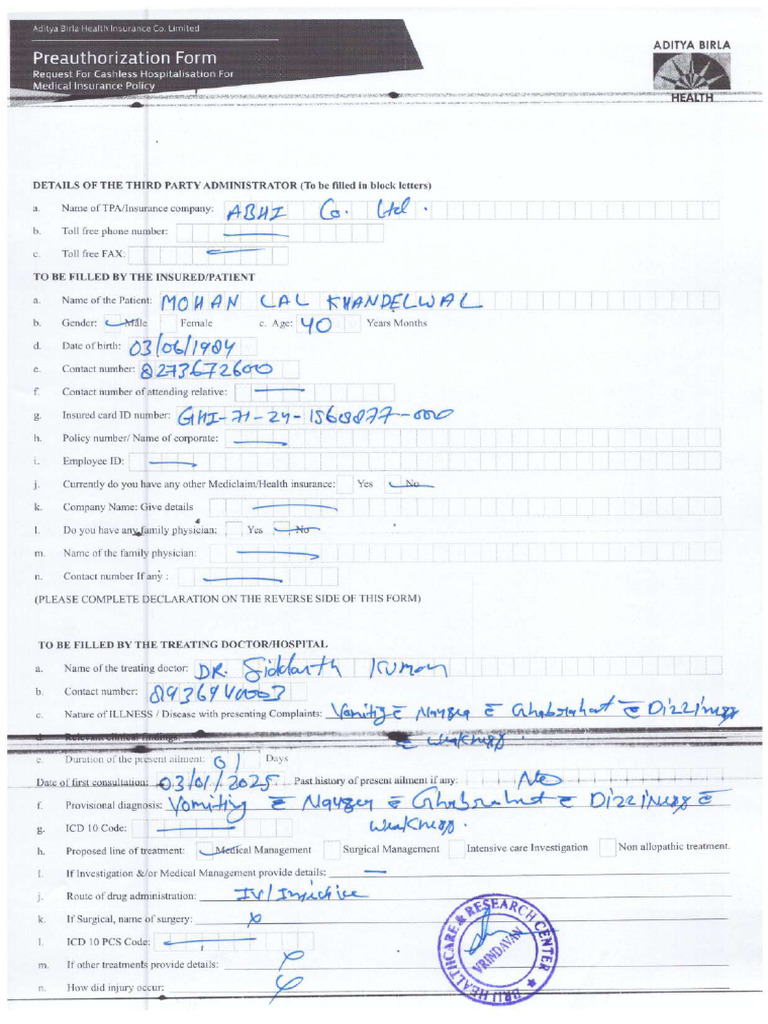 Aditya Birla Health Insurance Co. Limited
Preauthorization Form
Request For Cashless Hospitalisation For
Medical Insurance Policy
ADITYA BIRLA
HEALTH
DETAILS OF THE THIRD PARTY ADMINISTRATOR (To be filled in block letters)
a. Name of TPA/Insurance company: ABHI Co. Ltd.
b. Toll free phone number:
c. Toll free FAX:
TO BE FILLED BY THE INSURED/PATIENT
a. Name of the Patient: MOHAN LAL KHANDELWAL
b. Gender: Male Female c. Age: 40 Years Months
d. Date of birth: 03/06/1984
e. Contact number: 8273672600
f. Contact number of attending relative:
g. Insured card ID number: GHI-71-24-1568877-000
h. Policy number/ Name of corporate:
i. Employee ID:
j. Currently do you have any other Mediclaim/Health insurance: Yes No
k. Company Name: Give details
l. Do you have any family physician: Yes No
m. Name of the family physician:
n. Contact number If any :
(PLEASE COMPLETE DECLARATION ON THE REVERSE SIDE OF THIS FORM)
TO BE FILLED BY THE TREATING DOCTOR/HOSPITAL
a. Name of the treating doctor: DR. Siddarth Kumar
b. Contact number:
c. Nature of ILLNESS / Disease with presenting Complaints: Vomiting c̄ Nausea c̄ Ghabrahat c̄ Dizziness
d. Relevant clinical findings: c̄ weakness.
e. Duration of the present ailment: 01 Days
Date of first consultation: 03/01/2025 Past history of present ailment if any: No
f. Provisional diagnosis: Vomiting c̄ Nausea c̄ Ghabrahat c̄ Dizziness c̄
g. ICD 10 Code: weakness.
h. Proposed line of treatment: Medical Management Surgical Management Intensive care Investigation Non allopathic treatment.
I. If Investigation &/or Medical Management provide details:
j. Route of drug administration: IV/
k. If Surgical, name of surgery: x
l. ICD 10 PCS Code:
m. If other treatments provide details: x
n. How did injury occur: x
BRIJ HEALTHCARE & RESEARCH CENTER
VRINDAVAN